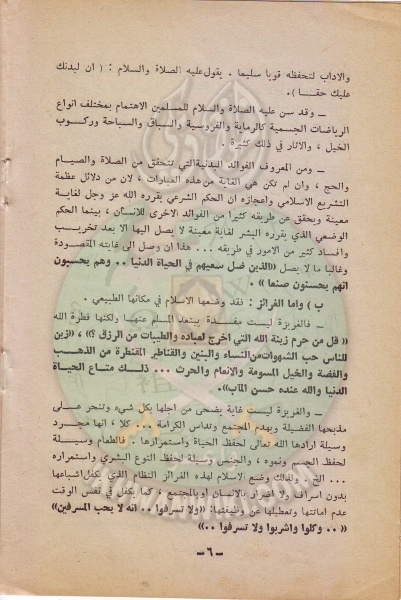 والاداب لتحفظه قويا سليما . يقول عليه الصلاة والسلام : ( ان لبدنك
عليك حقـا ) .
ــ وقد سن عليه الصلاة والسلام للمسلمين الاهتمام بمختلف انواع
الرياضات الجسمية كالرماية والفروسية والسباق والسباحة وركـوب
الخيل ، والاثار في ذلك كثيرة .
ــ ومن المعروف الفوائد البدنية التي تتحقق من الصلاة والصيــام
والحج ، وان لم تكن هي الغاية من هذه العبارات ، لان من دلائل عظمة
التشريع الاسلامي واعجازه ان الحكم الشرعي يقرره الله عز وجل لغاية
معينة ويحقق عن طريقه كثيرا من الفوائد الاخرى للانسان ، بينما الحكم
الوضعي الذي يقرره البشر لغاية معينة لا يصل اليها الا بعد تخريــب
وافساد كثير من الامور في طريقه .. هذا ان وصل الى غايته المقصودة
وغالبا ما لا يصل «الذين ضل سعيهم في الحياة الدنيا .. وهم يحسبون
انهم يحسنون صنعا» .
ب ) واما الغرائز : فقد وضعها الاسلام في مكانها الطبيعي .
ــ فالغريزة ليست مفسدة يبتعد المسلم عنها ولكنها فطرة الله
« قل من حرم زينة الله التي اخرج لعباده والطيبات من الرزق ؟» ، «زين
للناس حب الشهوات من النساء والبنين والقناطير المقنطرة من الذهـب
والفضة والخيل المسومة والانعام والحرث ... ذلـك متاع الحيـاة
الدنيا والله عنده حسن المآب» .
ــ والغريزة ليسـت غاية يضحى من اجلها بكل شيء وتنحر علـى
مذبحها الفضيلة ويهدم المجتمع وتداس الكرامة .. كلا ، انها مجـرد
وسيلة ارادها الله تعالى لحفظ الحياة واستمرارها ، فالطعام وسيلـة
لحفظ الجسم ونموه ، والجنس وسيلة لحفظ النوع البشري واستمراره
... الخ . ولذلك وضع الاسلام لهذه الغرائز النظام الذي يكفل اشباعها
بدون اسراف ولا اضرار بالانسان او بالمجتمع ، كما يكفل في نفس الوقت
عدم اماتتها وتعطيلها عن وظيفتها: «ولا تسرفوا .. انه لا يحب المسرفين»
« .. وكلوا واشربوا ولا تسرفوا .. »
ــ ٦ ــ